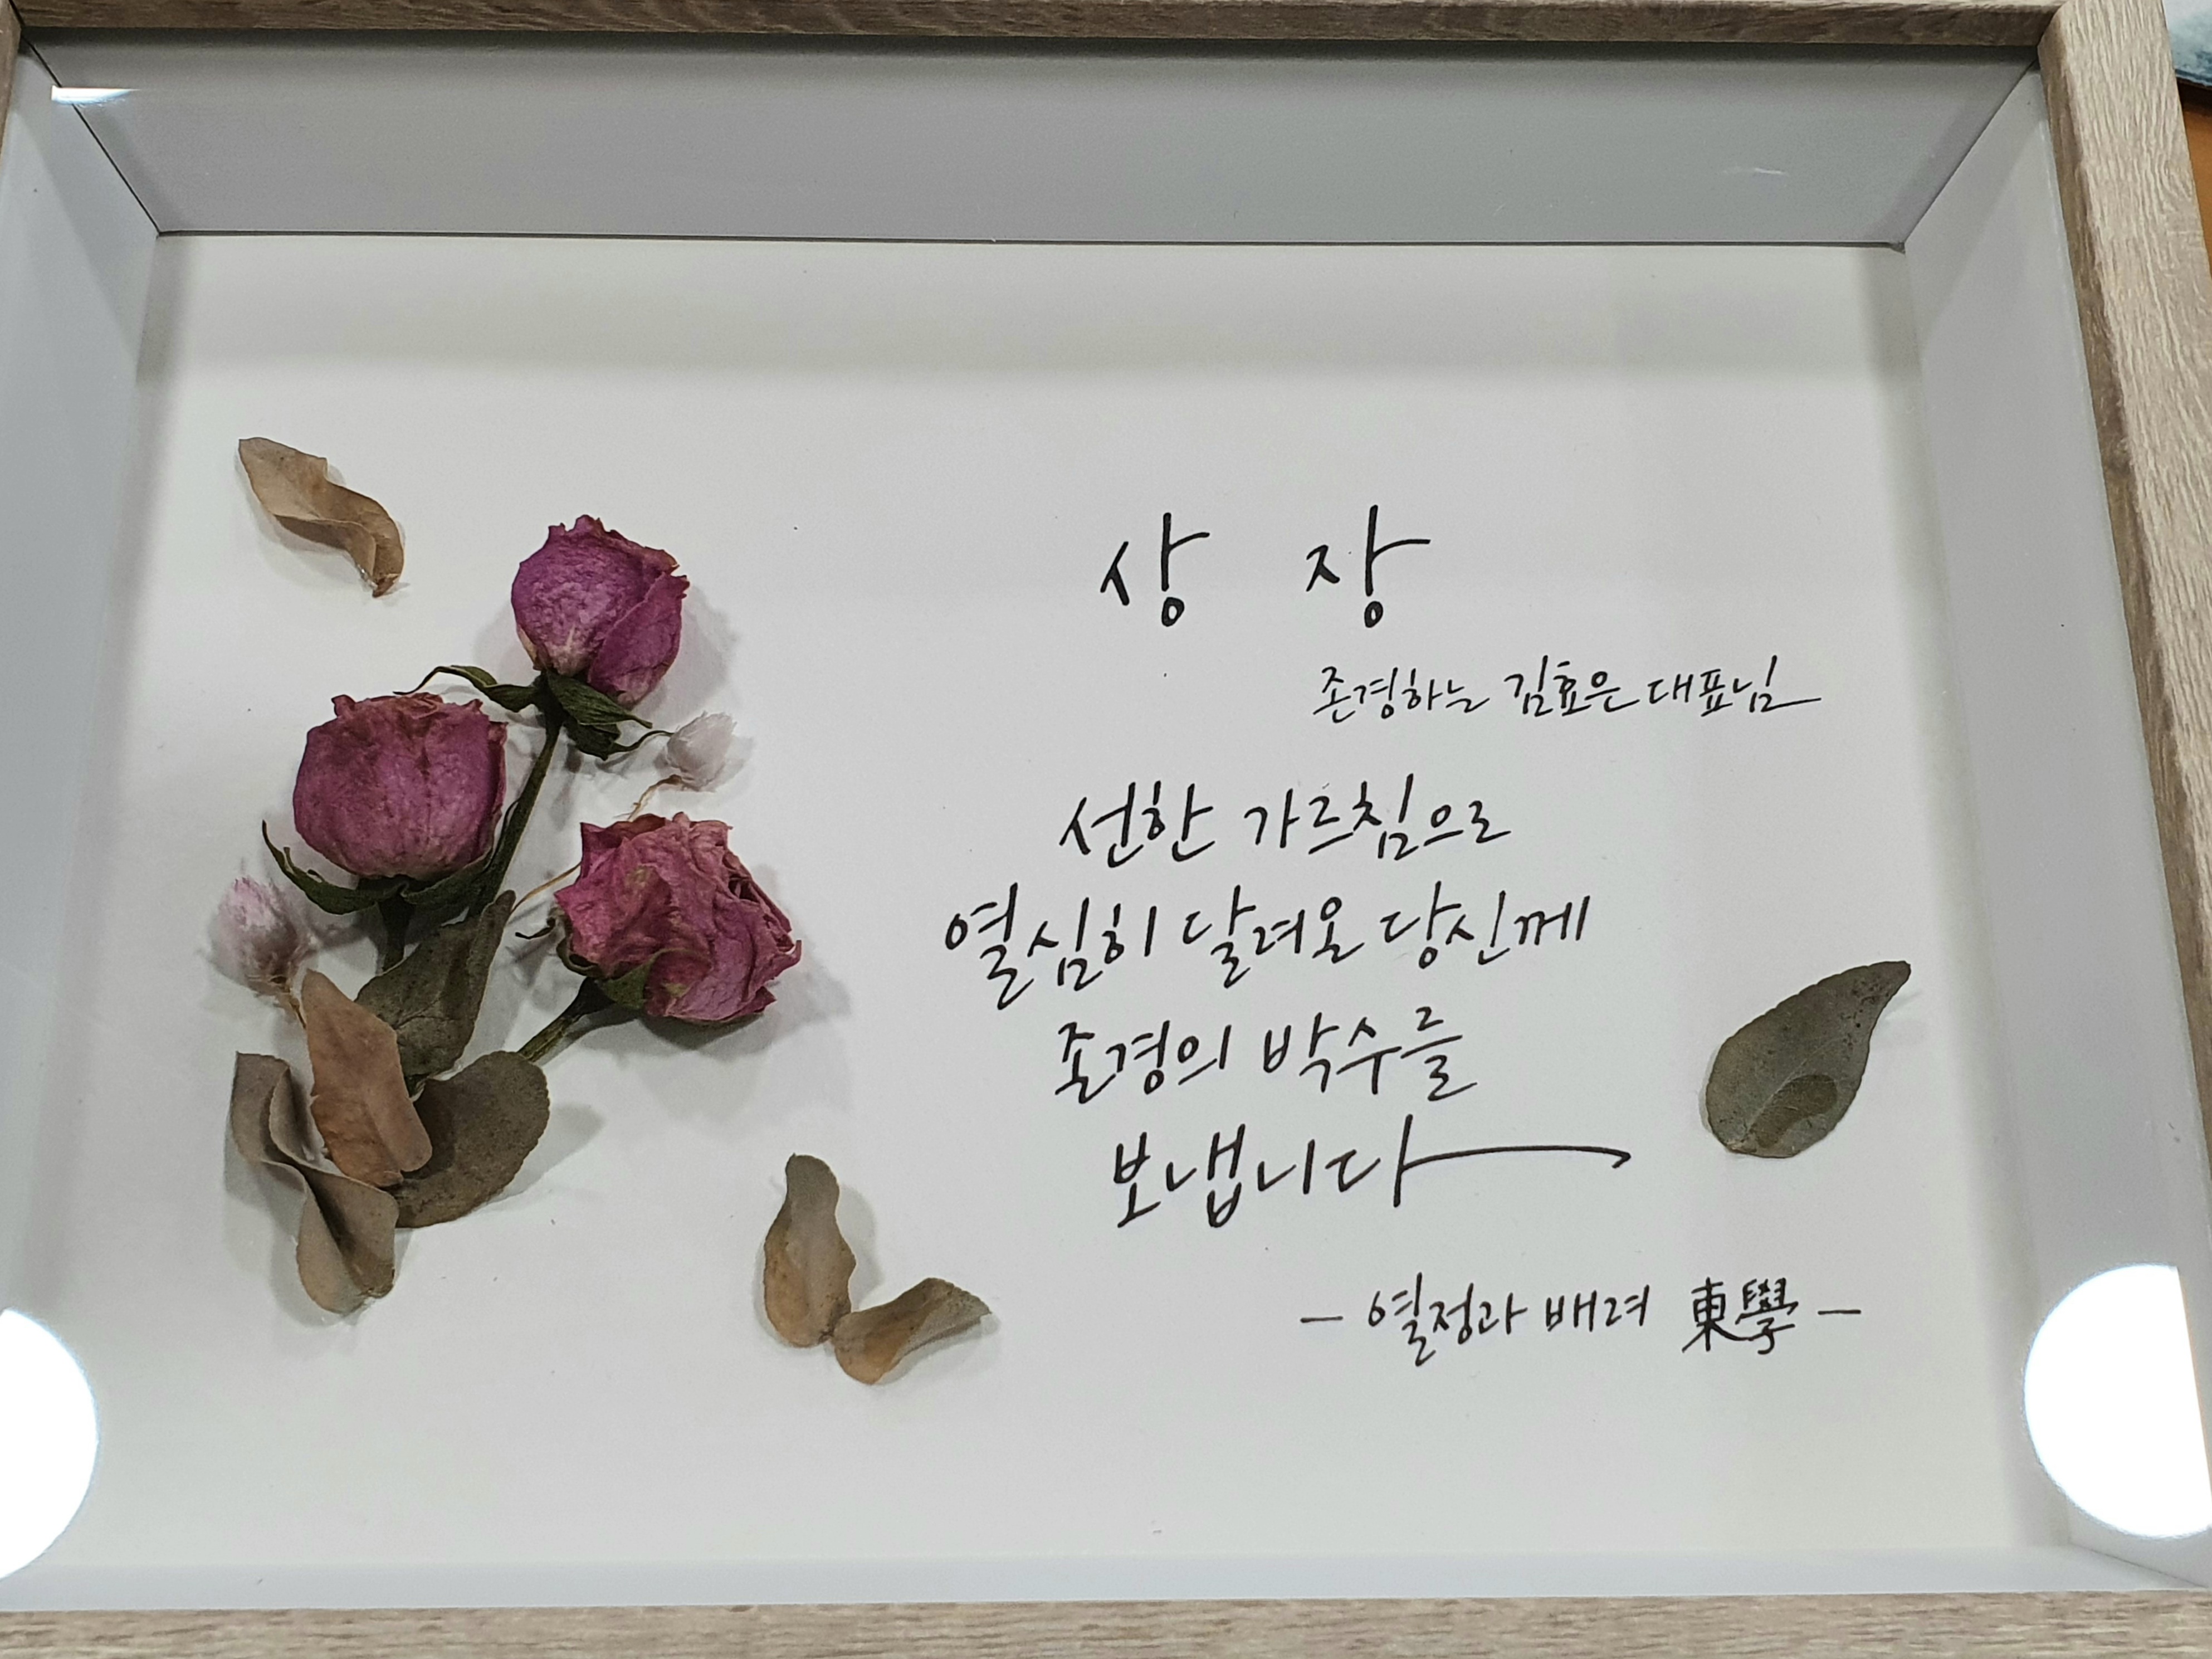 상 장
존경하는 김효은 대표님
선한 가르침으로
열심히 달려온 당신께
존경의 박수를
보냅니다
- 열정과 배려 東學 -